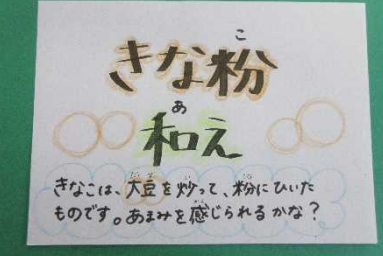 きな粉
和え
きなこは、大豆を炒って、粉にひいた
ものです。あまみを感じられるかな？